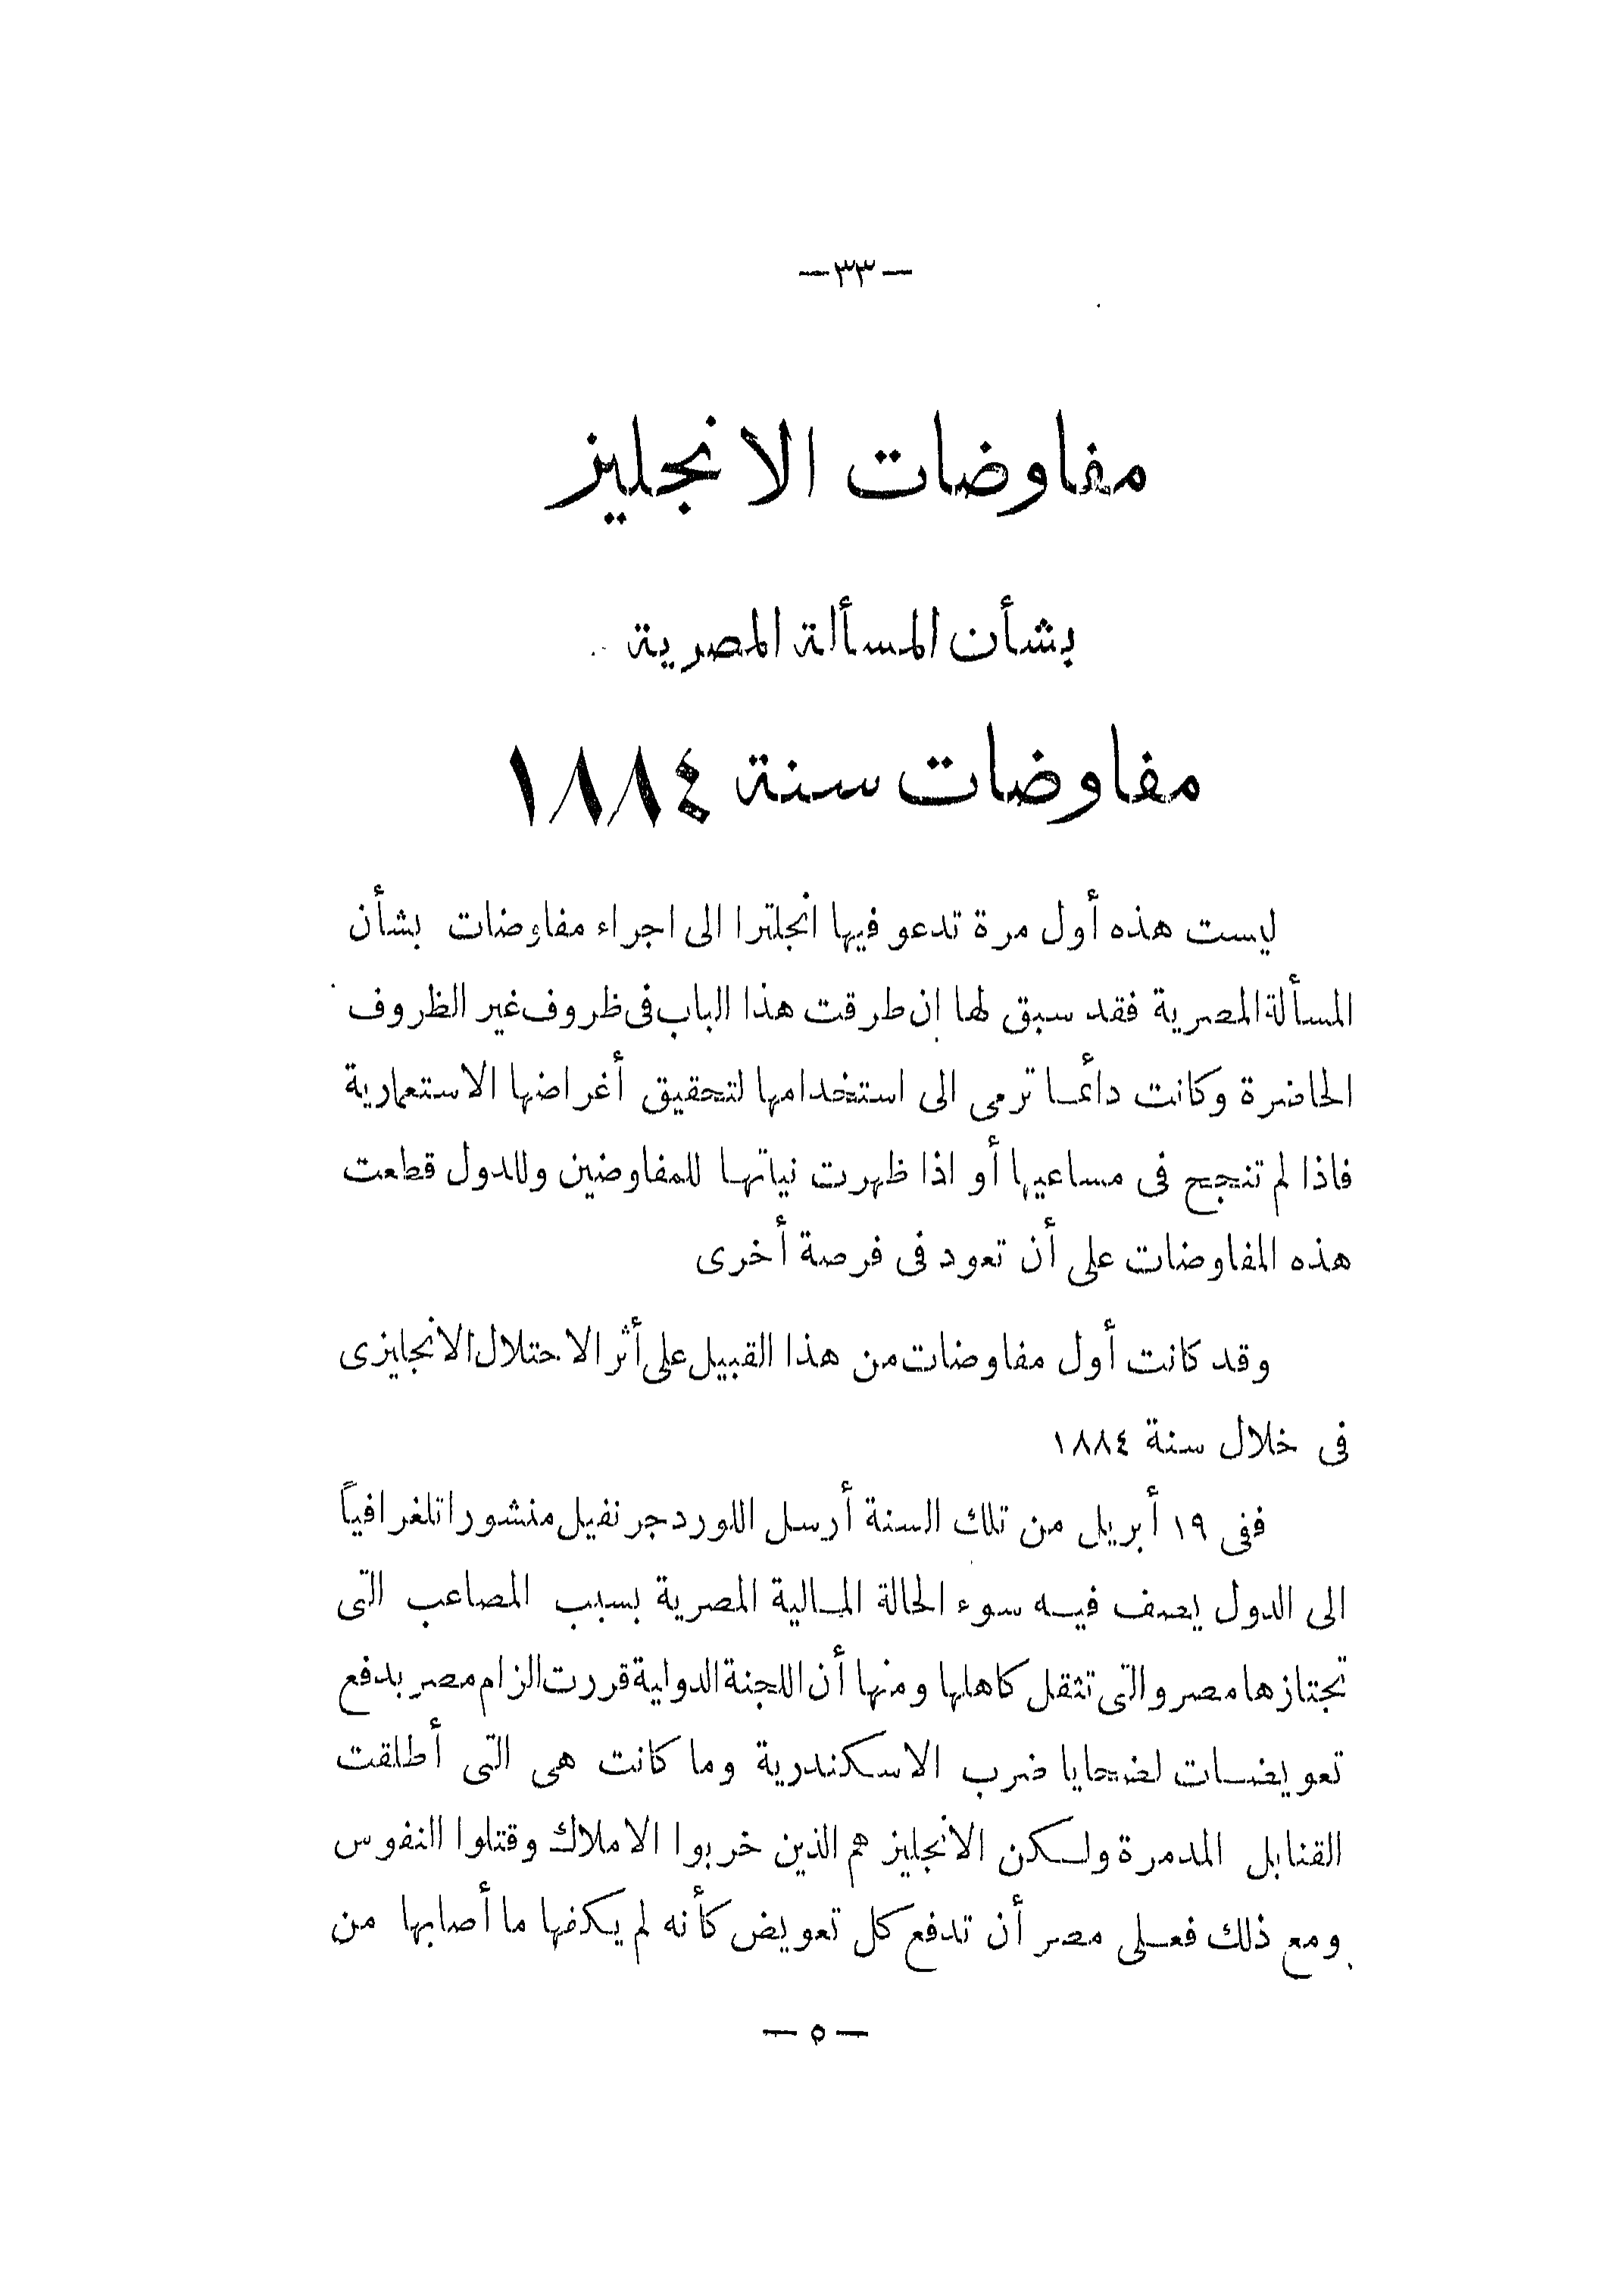 —٣٣—
مفاوضات الانجليز
بشأن المسألة المصرية
مفاوضات سنة ١٨٨٤
ليست هذه أول مرة تدعو فيها انجلترا الى اجراء مفاوضات بشأن
المسألة المصرية فقد سبق لها ان طرقت هذا الباب فى ظروف غير الظروف
الحاضرة وكانت دائما ترمى الى استخدامها لتحقيق أغراضها الاستعمارية
فاذا لم تنجح فى مساعيها أو اذا ظهرت نياتها للمفاوضين وللدول قطعت
هذه المفاوضات على أن تعود فى فرصة أخرى
وقد كانت أول مفاوضات من هذا القبيل على أثر الاحتلال الانجليزى
فى خلال سنة ١٨٨٤
ففى ١٩ أبريل من تلك السنة أرسل اللورد جرنفيل منشورا تلغرافياً
الى الدول يصف فيه سوء الحالة المالية المصرية بسبب المصاعب التى
تجتازها مصر والتى تثقل كاهلها ومنها أن اللجنة الدولية قررت الزام مصر بدفع
تعويضات لضحايا ضرب الاسكندرية وما كانت هى التى أطلقت
القنابل المدمرة ولكن الانجليز هم الذين خربوا الاملاك وقتلوا النفوس
ومع ذلك فعلى مصر أن تدفع كل تعويض كأنه لم يكفها ما أصابها من
— ٥ —